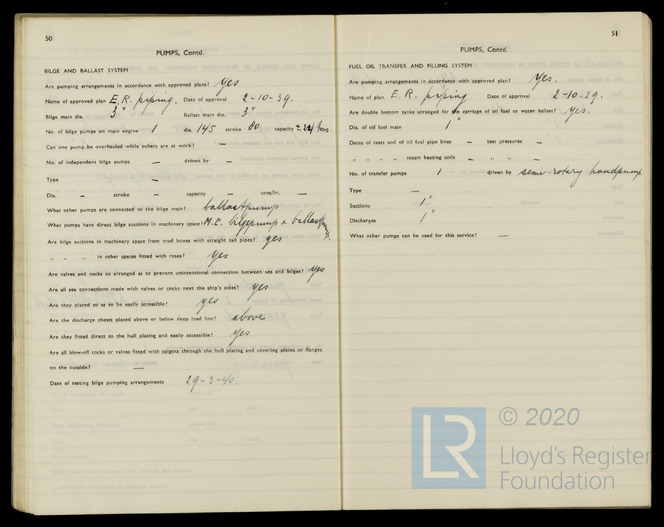 50
PUMPS, Contd.
BILGE AND BALLAST SYSTEM
Are pumping arrangements in accordance with approved plans? yes
Name of approved plan E.R. piping. Date of approval 2-10-39.
Bilge main dia. 3" Ballast main dia. 3"
No. of bilge pumps on main engine 1 dia. 145 stroke 80 capacity
Can one pump be overhauled while others are at work? —
No. of independent bilge pumps — driven by —
Type —
Dia. — stroke — capacity — tons/hr. —
What other pumps are connected to the bilge main? ballastpump
What pumps have direct bilge suctions in machinery space? M.E. bilgepump & ballastpump.
Are bilge suctions in machinery space from mud boxes with straight tail pipes? yes
„ „ „ in other spaces fitted with roses? yes
Are valves and cocks so arranged as to prevent unintentional connection between sea and bilges? yes
Are all sea connections made with valves or cocks next the ship's sides? yes
Are they placed so as to be easily accessible? yes
Are the discharge chests placed above or below deep load line? above
Are they fitted direct to the hull plating and easily accessible? yes
Are all blow-off cocks or valves fitted with spigots through the hull plating and covering plates or flanges
on the outside? —
Date of testing bilge pumping arrangements 29-3-40.
51
PUMPS, Contd.
FUEL OIL TRANSFER AND FILLING SYSTEM
Are pumping arrangements in accordance with approved plan? Yes.
Name of plan E.R. piping Date of approval 2-10-39.
Are double bottom tanks arranged for the carriage of oil fuel or water ballast? yes.
Dia. of oil fuel main 1"
Dates of tests and of oil fuel pipe lines — test pressures —
„ „ „ „ steam heating coils — „ „ —
No. of transfer pumps 1 driven by semi-rotary handpump
Type —
Suctions 1"
Discharges 1"
What other pumps can be used for this service? —
LR
© 2020
Lloyd's Register
Foundation